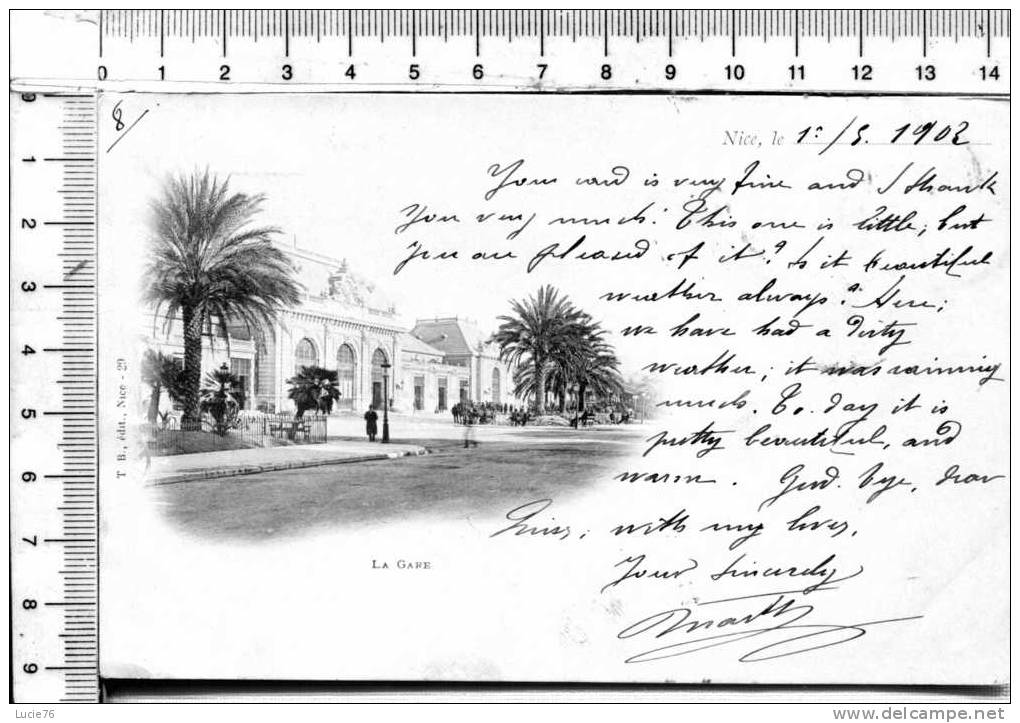 0 1 2 3 4 5 6 7 8 9 10 11 12 13 14
0
1
2
3
4
5
6
7
8
9
8/
Nice, le 1º/5. 1902
Your card is very fine and I thank
you very much! This one is little; but
you are pleased of it? Is it beautiful
weather always? Here;
we have had a dirty
weather; it was raining
much. To. day it is
pretty beautiful, and
warm. Good. bye, dear
with my love,
Your sincerely
T B., édit., Nice - 29
LA GARE
Lucie76
www.delcampe.net